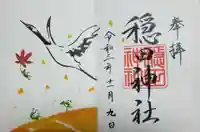 奉拝
穏田神社
令和三年十一月九日